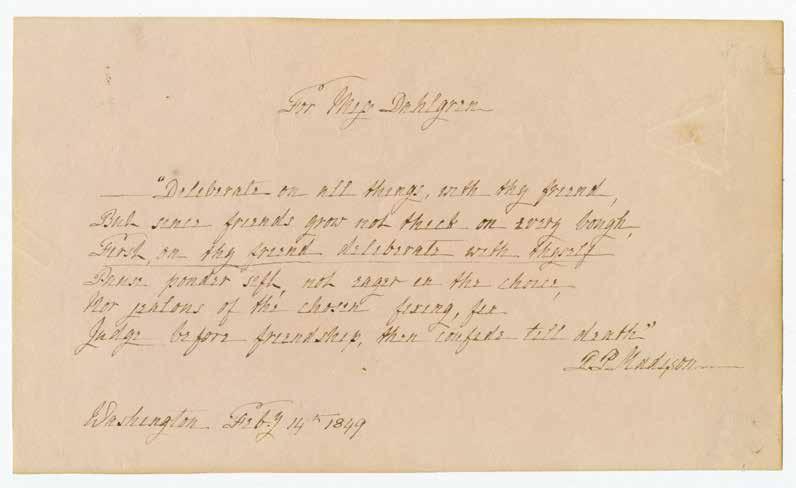 For Miss Dahlgren
"Deliberate on all things, with thy friend,
But since friends grow not thick on every bough,
First, on thy friend deliberate with thyself
Pause ponder sift, not eager in the choice,
Nor jealous of the chosen fixing, fix
Judge before friendship, then confide till death"
D. P. Madison
Washington Feb.y 14th 1849